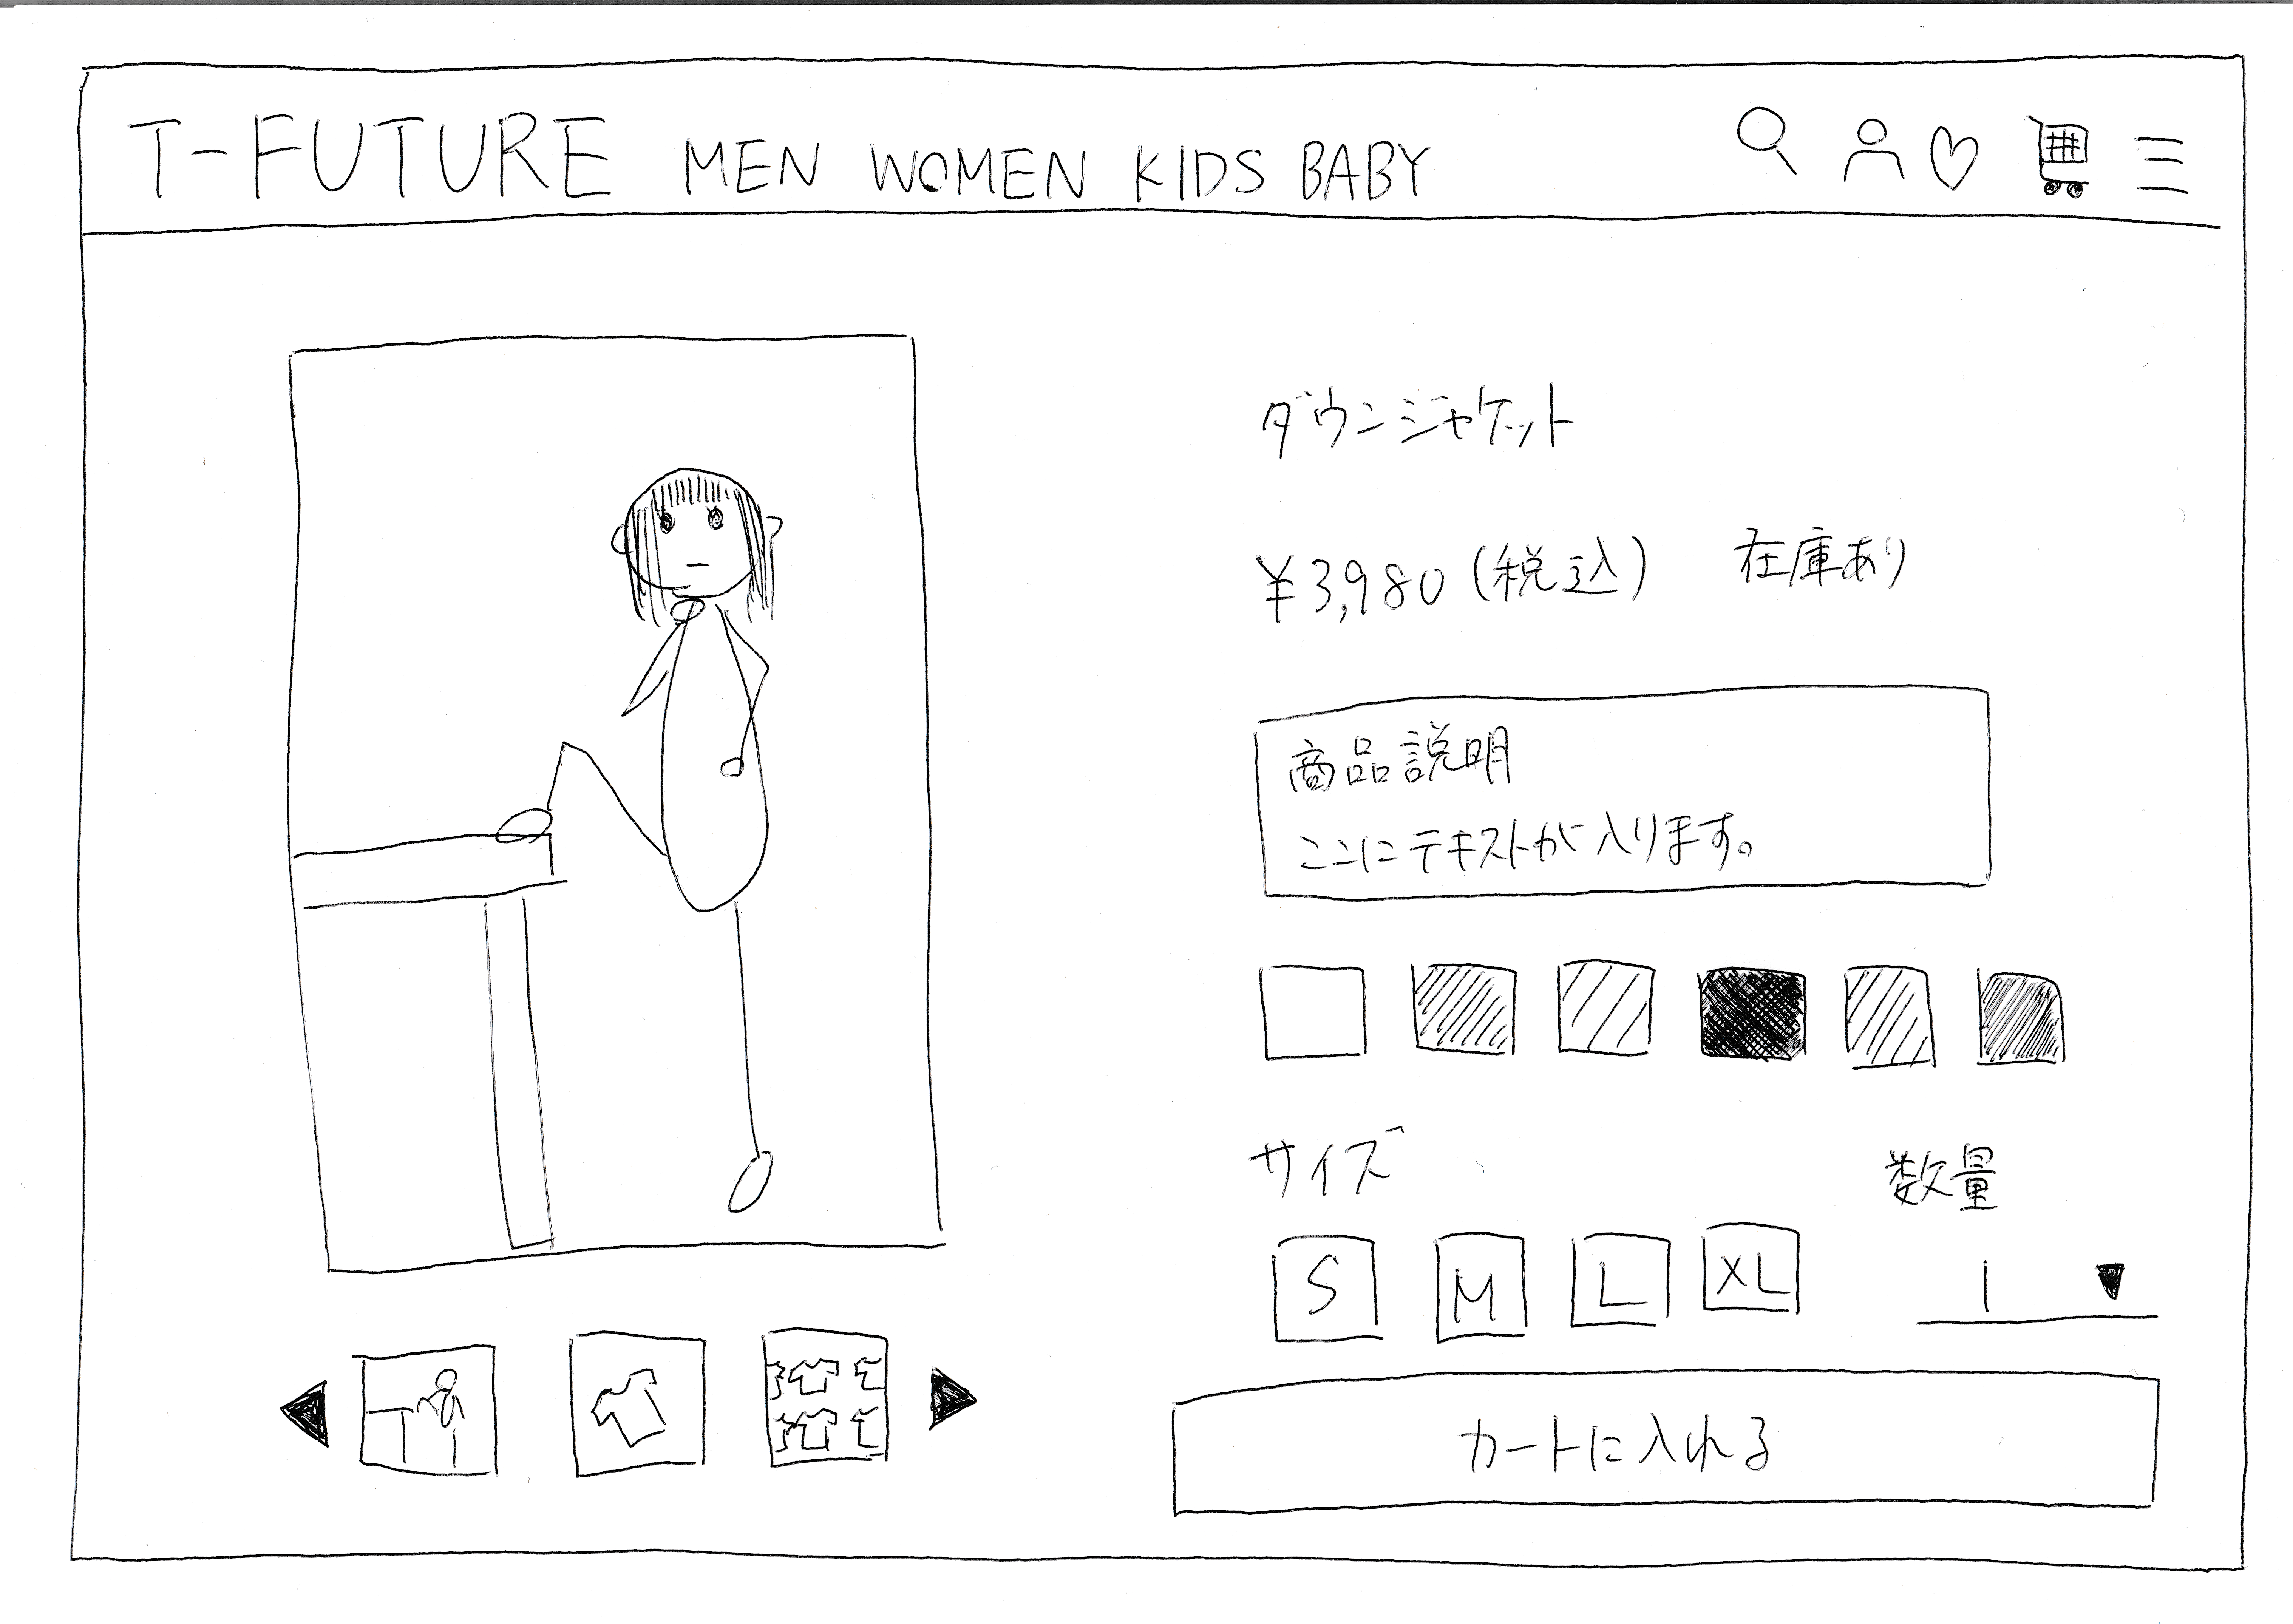 T-FUTURE MEN WOMEN KIDS BABY
ダウンジャケット
¥3,980(税込) 在庫あり
商品説明
ここにテキストが入ります。
サイズ 数量
S M L XL 1
カートに入れる